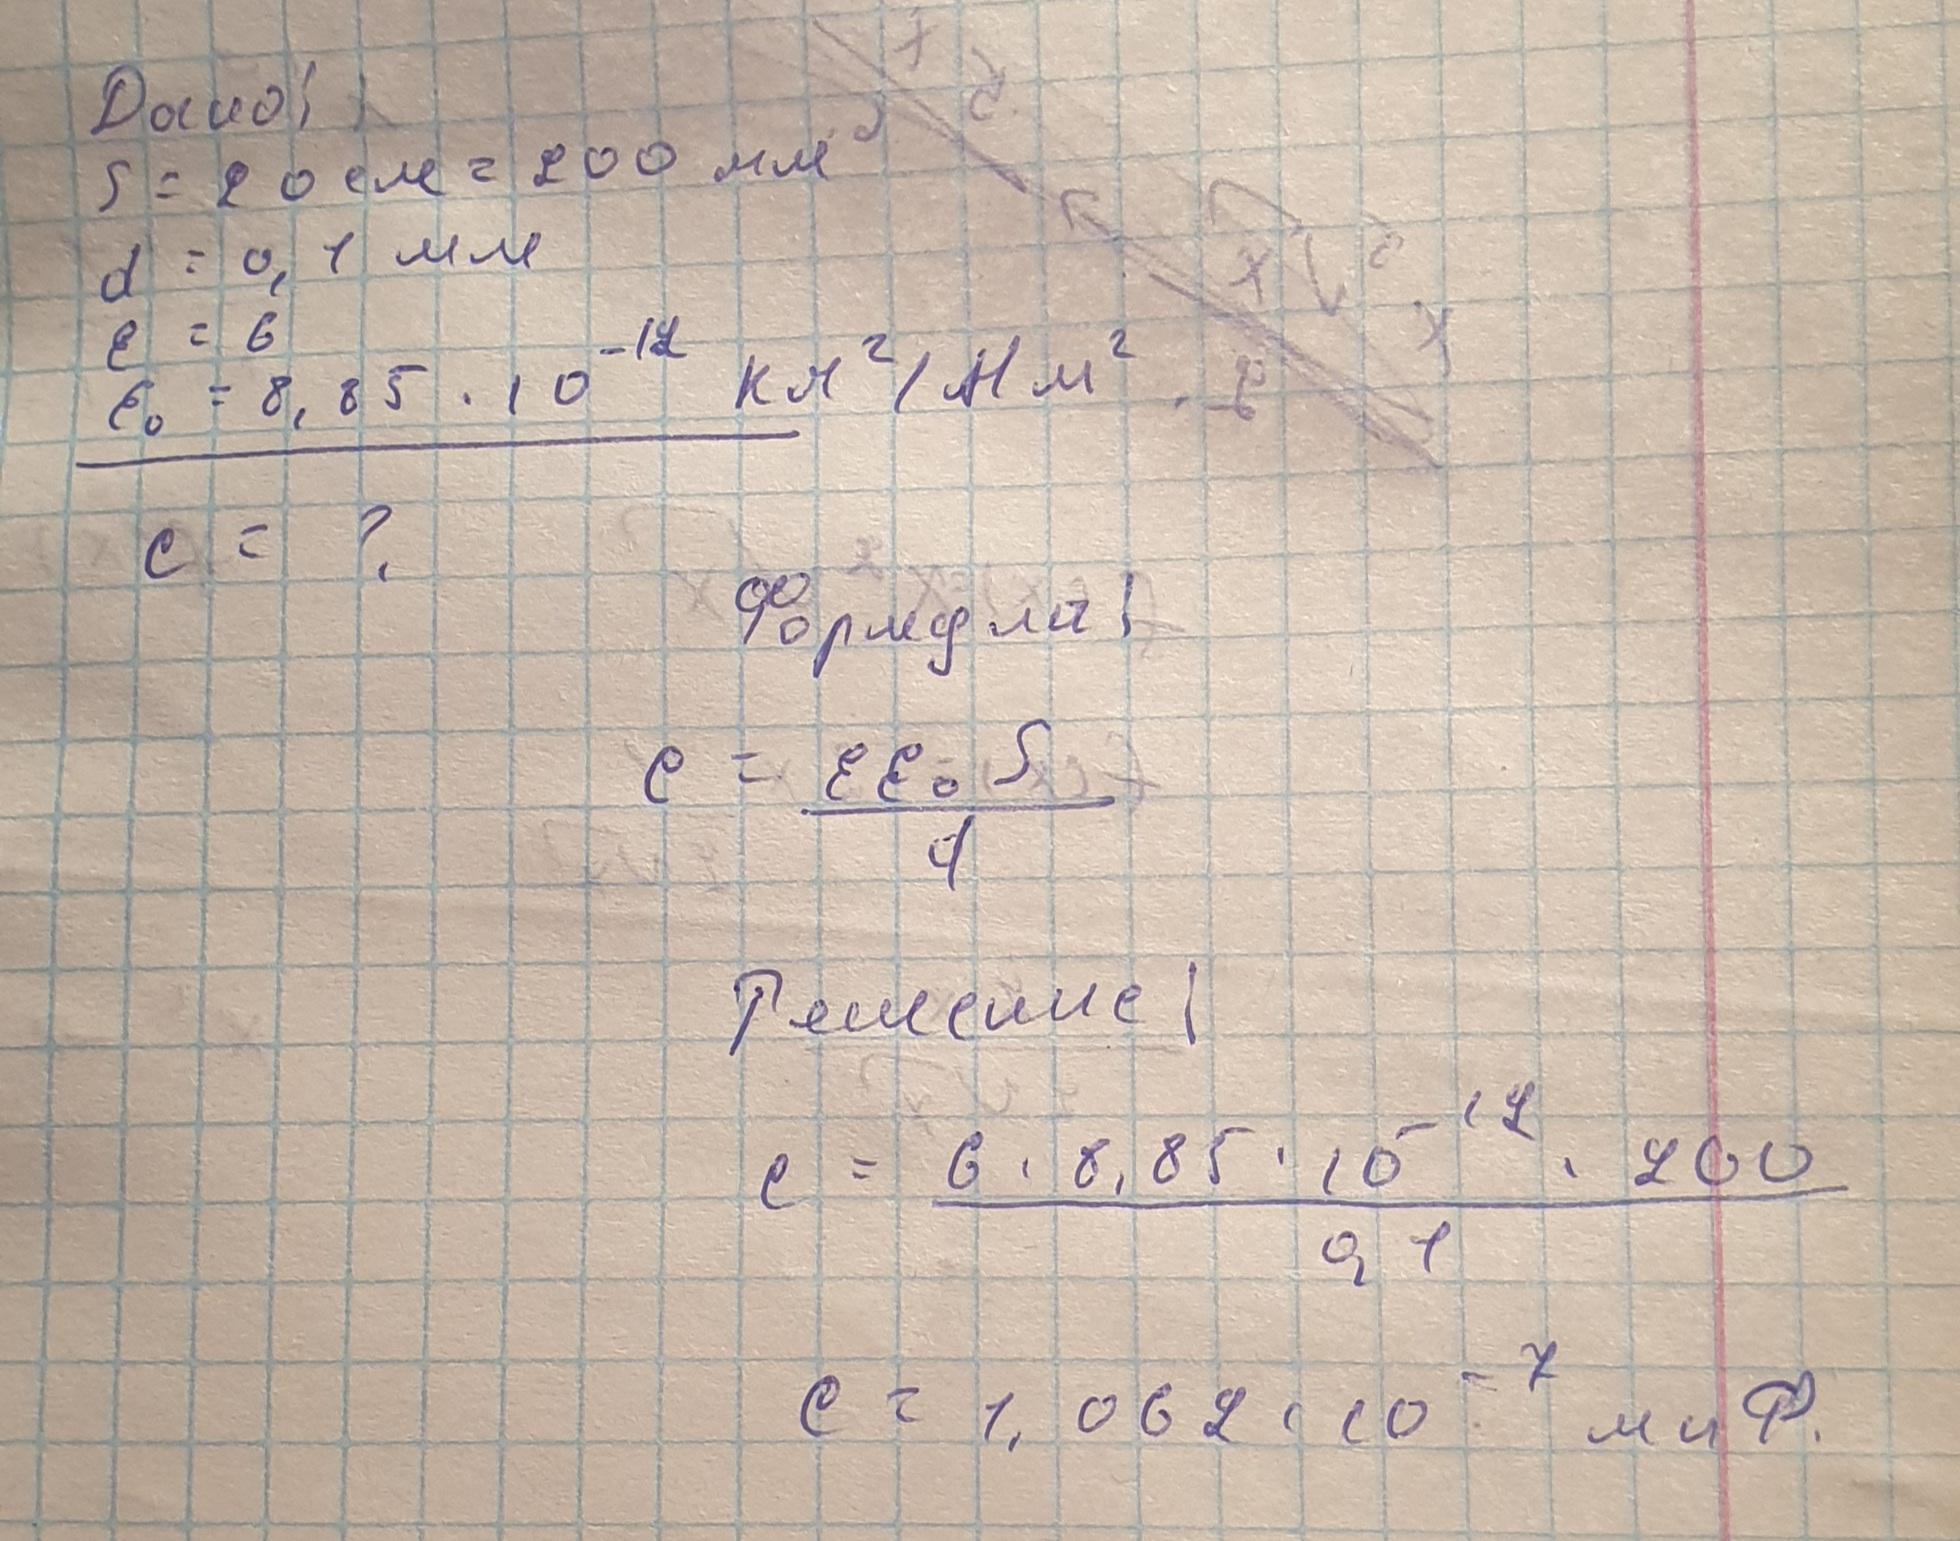 Дано:
S = 20 см = 200 мм
d = 0,1 мм
ε = 6
ε₀ = 8,85 · 10⁻¹² Кл²/Нм²
C = ?
Формула:
C = εε₀S / d
Решение:
C = 6 · 8,85 · 10⁻¹² · 200 / 0,1
C = 1,062 · 10⁻⁷